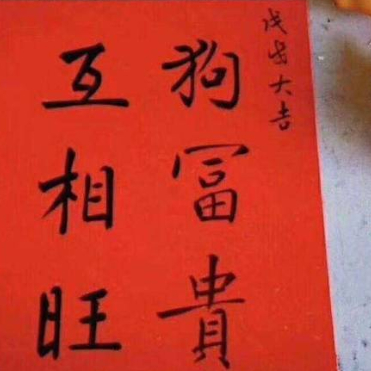 戊戌大吉
狗冨貴
互相旺